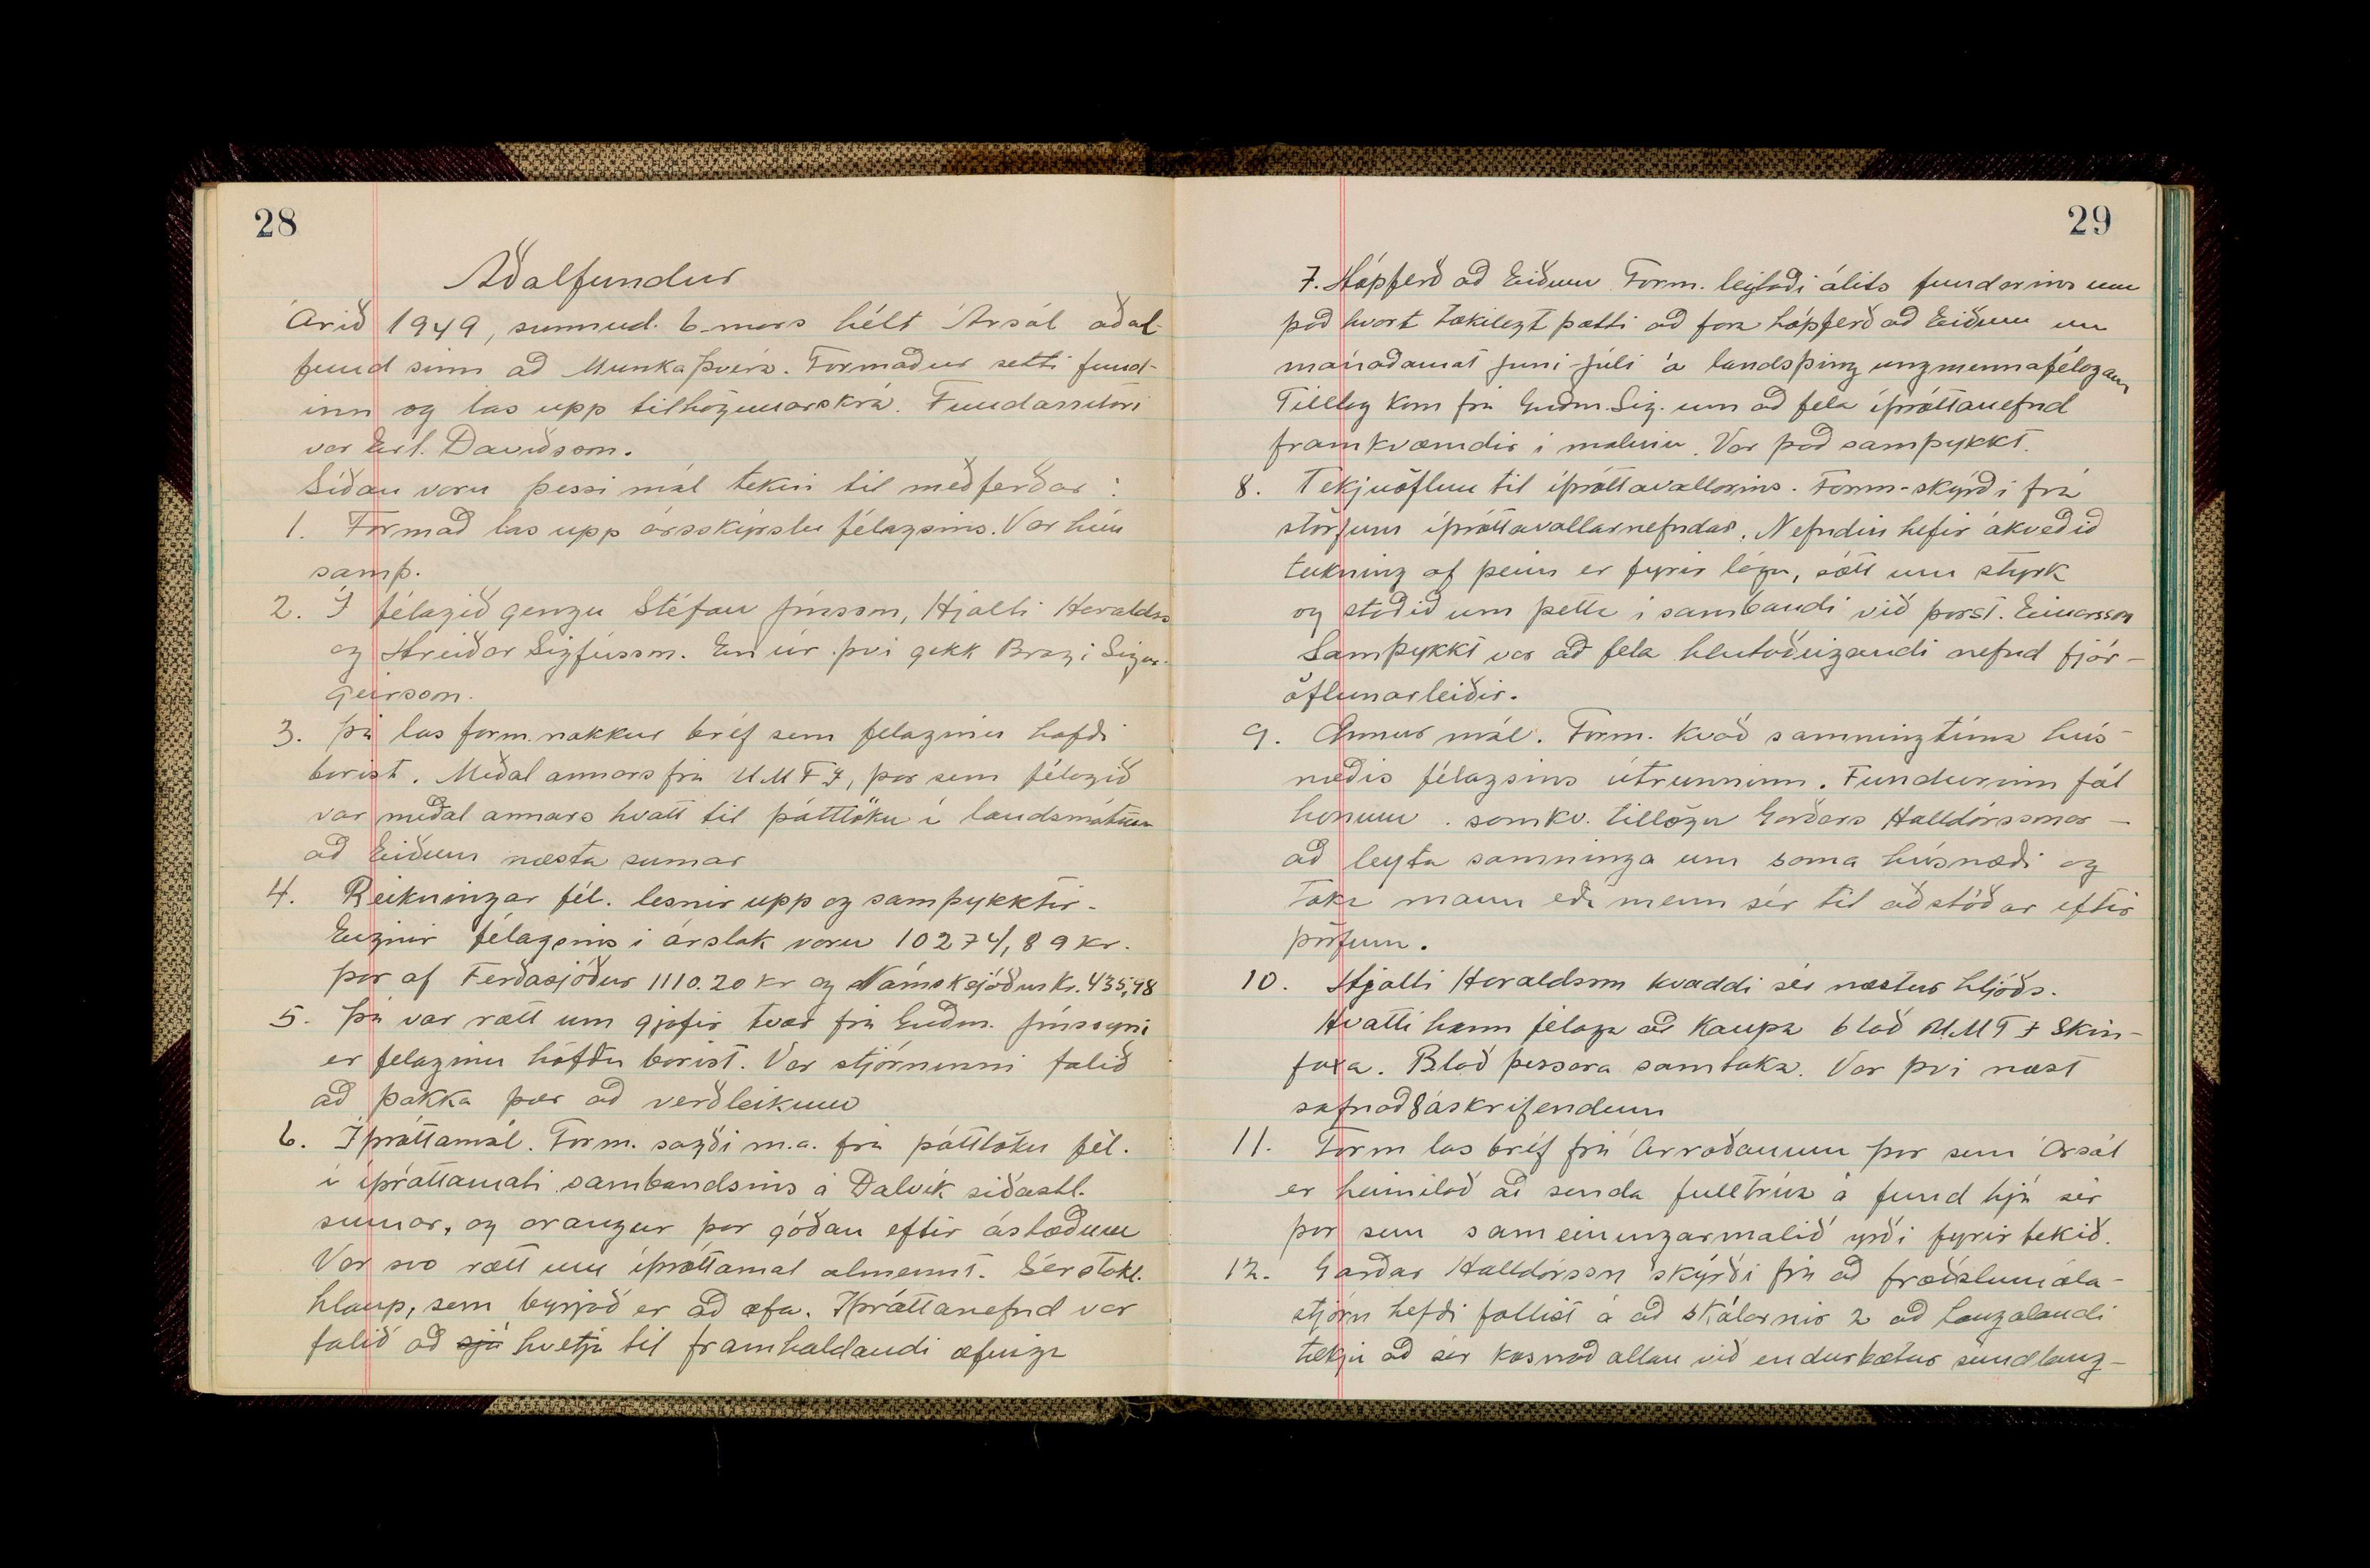 28
Aðalfundur
Árið 1949, sunnud. 6. mars hélt Ársól aðal-
fund sinn að Munkaþverá. Formaður setti fund-
inn og las upp tilhögunarskrá. Fundarritari
var Erl. Davíðsson.
Síðan voru þessi mál tekin til meðferðar:
1. Formað las upp ársskýrslu félagsins. Var hún
samþ.
2. Í félagið gengu Stéfan Jónsson, Hjalti Haraldss
og Hreiðar Sigfússon. En úr því gekk Bragi Sigur-
geirsson.
3. Þá las form. nokkur bréf sem felaginu hafði
borist. Meðal annars frá UMFÍ, þar sem félagið
var meðal annars hvatt til þátttöku í landsmótinu
að Eiðum næsta sumar
4. Reikningar fél. lesnir upp og samþykktir.
Eignir félagsins í árslok voru 10274,89 kr.
þar af Ferðasjóður 1110.20 kr og Námsksjóður kr. 435,98
5. Þá var rætt um gjafir tvær frá Guðm. Jónssyni
er felaginu höfðu borist. Var stjórninni falið
að þakka þær að verðleikum
6. Íþróttamál. Form. sagði m.a. frá þátttöku fél.
í íþróttamóti sambandsins á Dalvík síðastl.
sumar, og árangur þar góðan eftir ástæðum
Var svo rætt um íþróttamál almennt. Sérstakl.
hlaup, sem byrjað er að æfa. Íþróttanefnd var
falið að sjá hvetja til framhaldandi æfinga
29
7. Hópferð að Eiðum Form. leitaði álits fundarins um
það hvort tækilegt þætti að fara hópferð að Eiðum um
mánaðamót júní-júlí á landsþing ungmennafélagann
Tillag kom frá Guðm. Sig. um að fela íþróttanefnd
framkvæmdir í málinu. Var það samþykkt.
8. Tekjuöflun til íþróttavallarins. Form. skýrði frá
störfum íþróttavallarnefndar. Nefndin hefir ákveðið
teikning af þeim er fyrir lágu, sótt um styrk
og staðið um þetta í sambandi við þorst. Einarsson
Samþykkt var að fela hlutaðeigandi nefnd fjár-
öflunarleiðir.
9. Önnur mál. Form. kvað samningtíma hús-
næðis félagsins útrunninn. Fundurinn fól
honum. samkv. tillögu Garðars Halldórssonar -
að leyta samninga um sama húsnæði og
taka mann eða menn sér til aðstoðar eftir
þörfum.
10. Hjalti Haraldsson kvaddi sér næstur hljóðs.
Hvatti hann félaga að kaupa blað UMFÍ Skin-
faxa. Blað þessara samtaka. Var því næst
safnað 8 áskrifendum
11. Form las bréf frá Árroðanum þar sem Ársól
er heimilað að senda fulltrúa á fund hjá sér
þar sem sameiningarmálið yrði fyrir tekið.
12. Garðar Halldórsson skýrði frá að fræðslumála-
stjórn hefði fallist á að skálarnir 2 að Laugalandi
tækju að sér kosnað allan við endurbætur sundlaug-